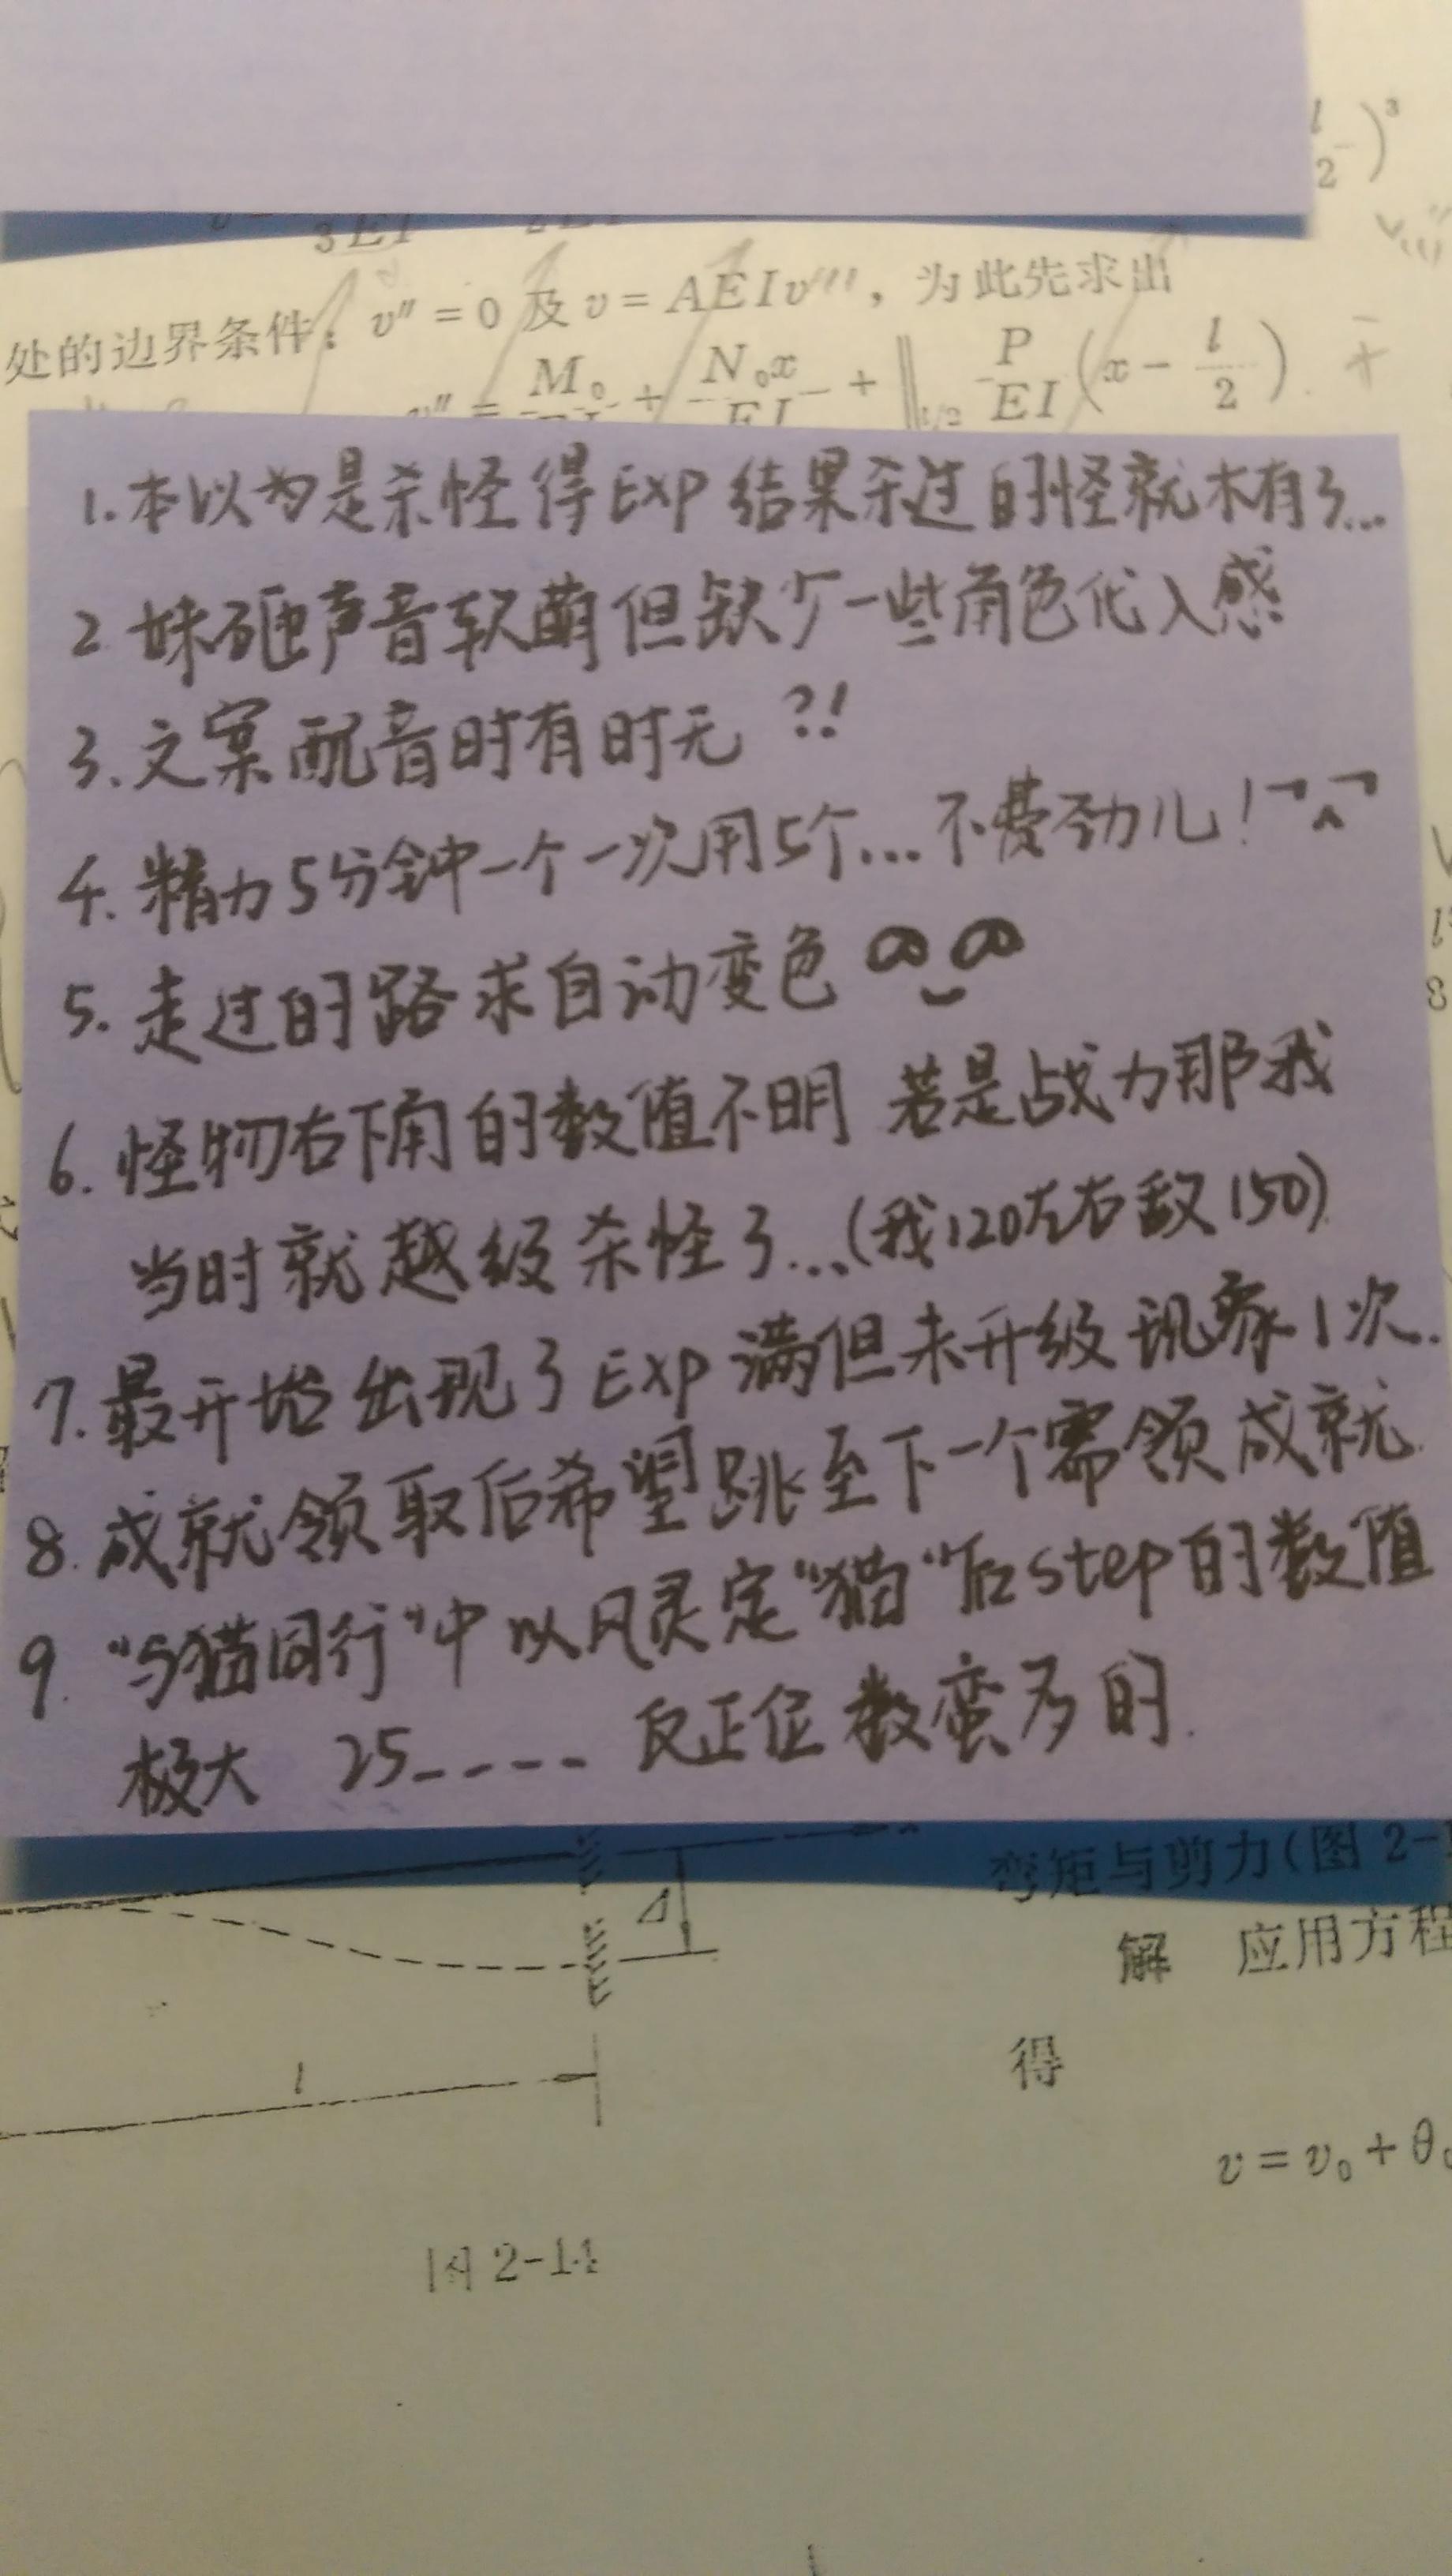 3EI 2EI
处的边界条件：v″=0及v=AEIv‴，为此先求出
v″= M₀ + N₀x/EI + ‖l/2 P/EI (x - l/2)
1.本以为是杀怪得Exp 结果杀过的怪就木有了...
2 妹砸声音软萌但缺少一些角色代入感
3、文案配音时有时无 ?!
4. 精力5分钟一个一次用5个...不费劲儿！
5. 走过的路求自动变色
6. 怪物右下角的数值不明 若是战力那我
当时就越级杀怪了...(我120左右敌150)
7.最开始出现了Exp 满但未升级现象1次.
8. 成就领取后希望跳至下一个需领成就.
9. “与猫同行”中以风灵定“猫”后step的数值
极大 25_ _ _ _ 反正位数蛮多的.
弯矩与剪力(图 2-1
Δ
解 应用方程
得
l
v = v₀ + θ₀
图 2-14